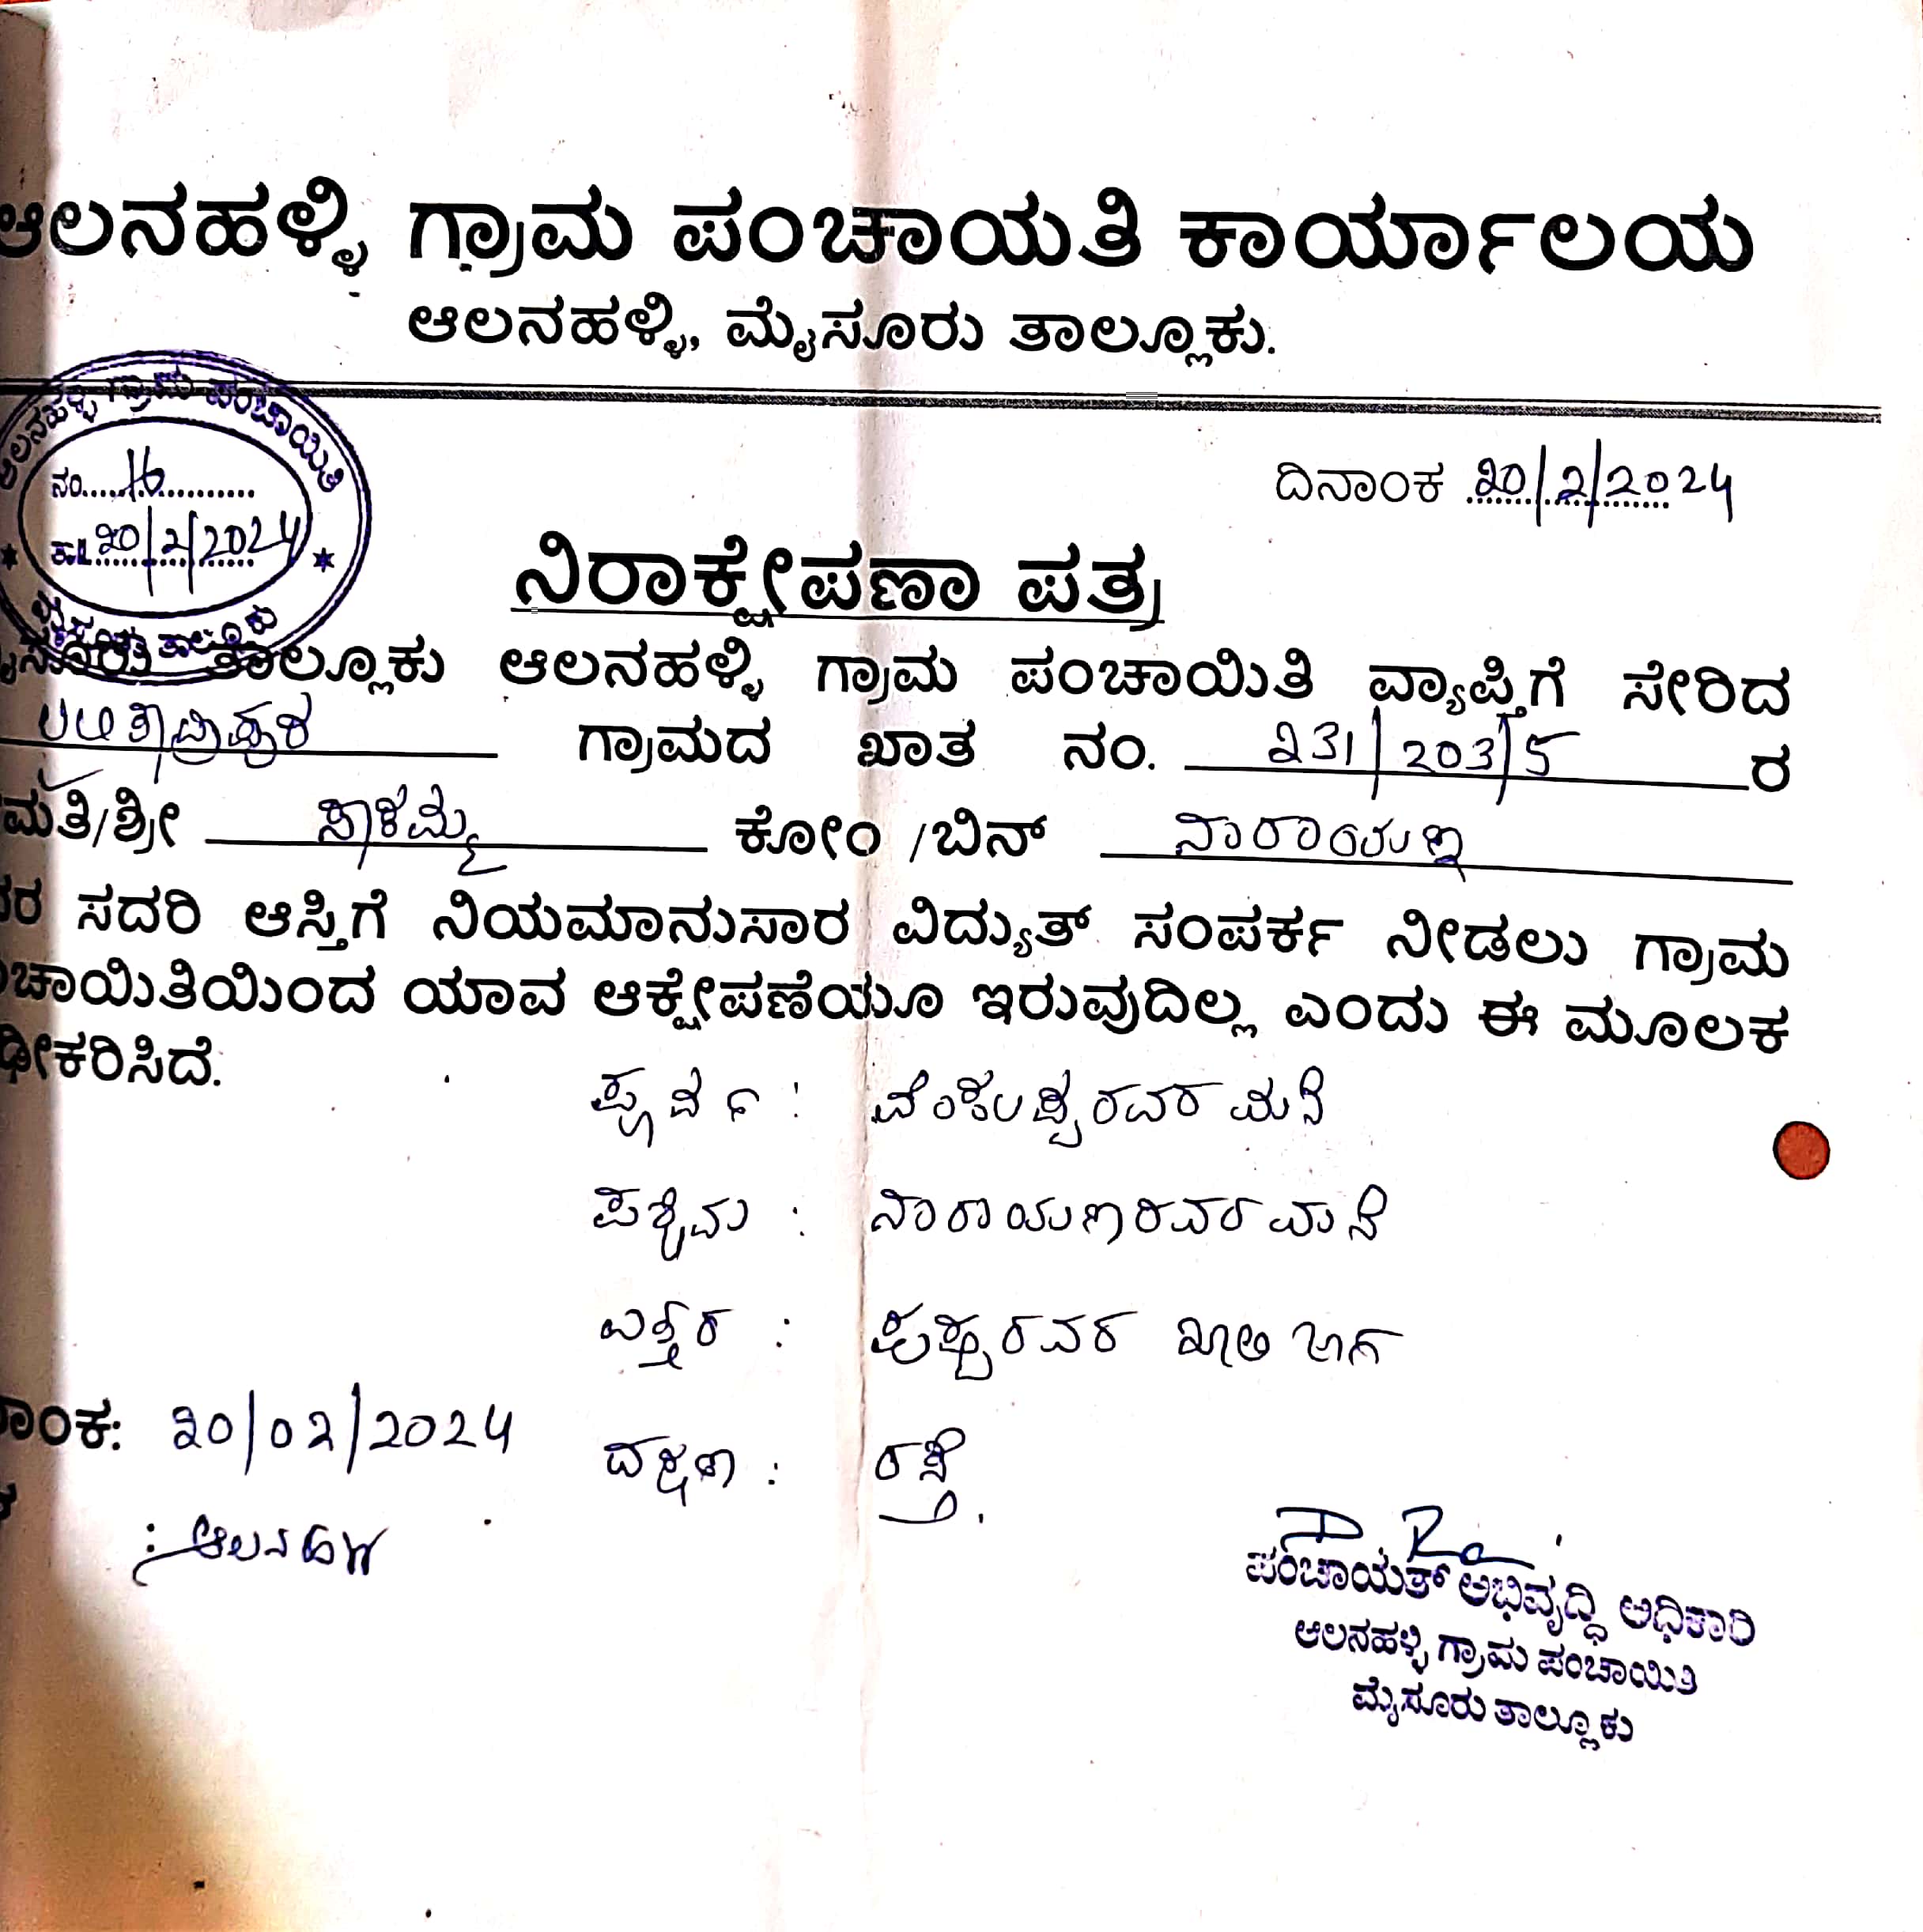 ಆಲನಹಳ್ಳಿ ಗ್ರಾಮ ಪಂಚಾಯತಿ ಕಾರ್ಯಾಲಯ
ಆಲನಹಳ್ಳಿ, ಮೈಸೂರು ತಾಲ್ಲೂಕು.
ಆಲನಹಳ್ಳಿ ಗ್ರಾಮ ಪಂಚಾಯಿತಿ
ನಂ. 16
20/2/2024
ಮೈಸೂರು ತಾಲ್ಲೂಕು
ದಿನಾಂಕ 20/2/2024
ನಿರಾಕ್ಷೇಪಣಾ ಪತ್ರ
ಮೈಸೂರು ತಾಲ್ಲೂಕು ಆಲನಹಳ್ಳಿ ಗ್ರಾಮ ಪಂಚಾಯಿತಿ ವ್ಯಾಪ್ತಿಗೆ ಸೇರಿದ
ಗ್ರಾಮದ ಖಾತ ನಂ. 231/203/5 ರ
ಮತಿ/ಶ್ರೀ ಕೋಂ /ಬಿನ್ ನಾರಾಯಣ
ರ ಸದರಿ ಆಸ್ತಿಗೆ ನಿಯಮಾನುಸಾರ ವಿದ್ಯುತ್ ಸಂಪರ್ಕ ನೀಡಲು ಗ್ರಾಮ
ಚಾಯಿತಿಯಿಂದ ಯಾವ ಆಕ್ಷೇಪಣೆಯೂ ಇರುವುದಿಲ್ಲ ಎಂದು ಈ ಮೂಲಕ
ಢೀಕರಿಸಿದೆ.
ಪೂರ್ವ : ವೆಂಕಟಪ್ಪರವರ ಮನೆ
ಪಶ್ಚಿಮ : ನಾರಾಯಣರವರ ಮನೆ
ಉತ್ತರ : ಪುಷ್ಪರವರ ಖಾಲಿ ಜಾಗ
ನಾಂಕ: 20/02/2024
ದಕ್ಷಿಣ : ರಸ್ತೆ.
: ಆಲನಹಳ್ಳಿ
ಪಂಚಾಯತ್ ಅಭಿವೃದ್ಧಿ ಅಧಿಕಾರಿ
ಆಲನಹಳ್ಳಿ ಗ್ರಾಮ ಪಂಚಾಯಿತಿ
ಮೈಸೂರು ತಾಲ್ಲೂಕು